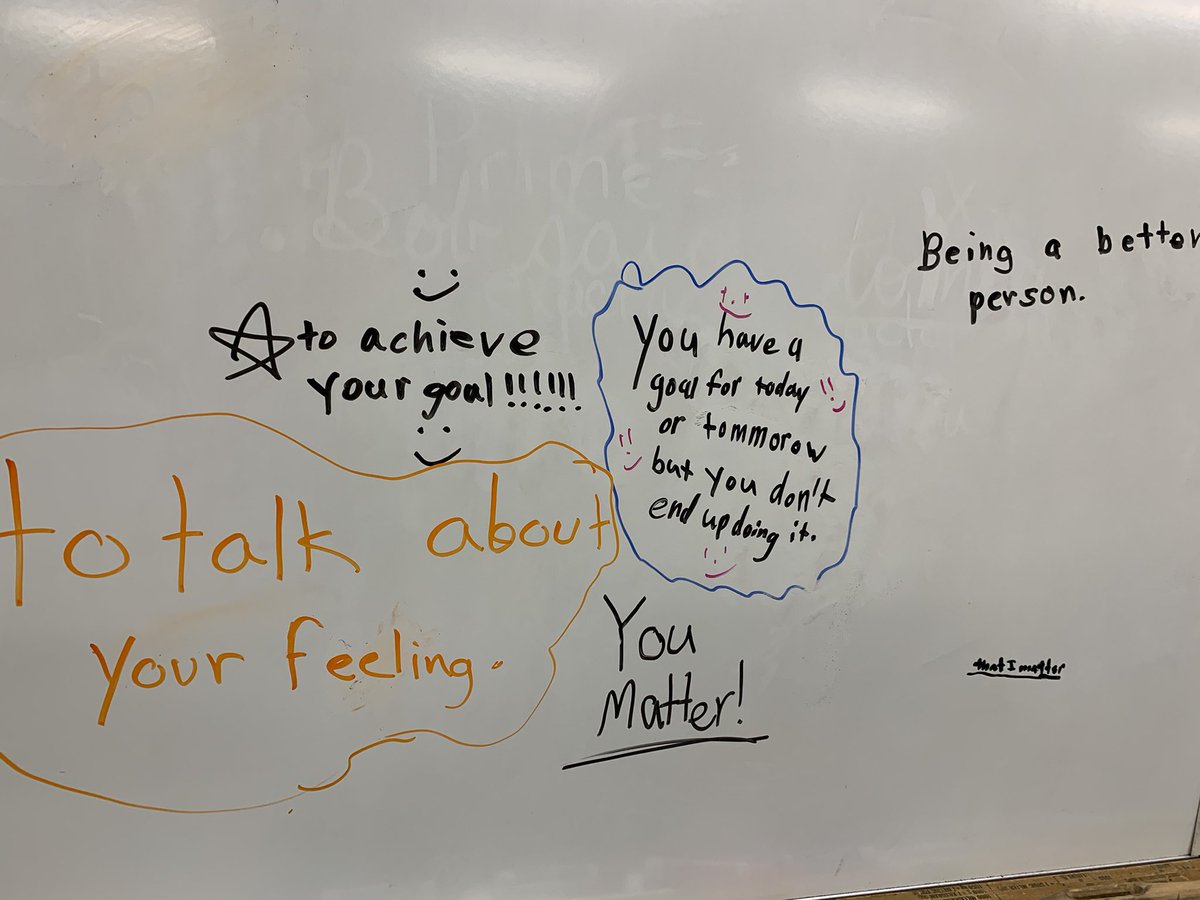 to achieve
your goal!!!!!!
You have a
goal for today
or tommorow
but you don't
end up doing it.
Being a better
person.
to talk about
your feeling.
You
Matter!
that I matter